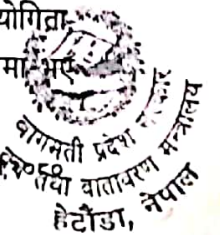 योगिता
मा भए
वागमती प्रदेश सरकार
तथा वातावरण मन्त्रालय
हेटौंडा, नेपाल